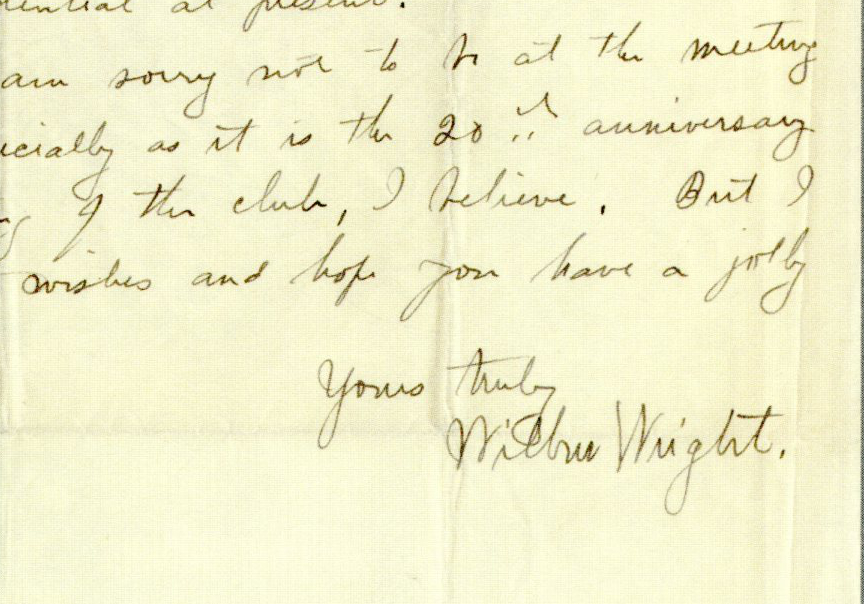 at present.
am sorry not to be at the meeting
ecially as it is the 20th anniversary
of the club, I believe. But I
wishes and hope you have a jolly
Yours truly
Wilbur Wright.